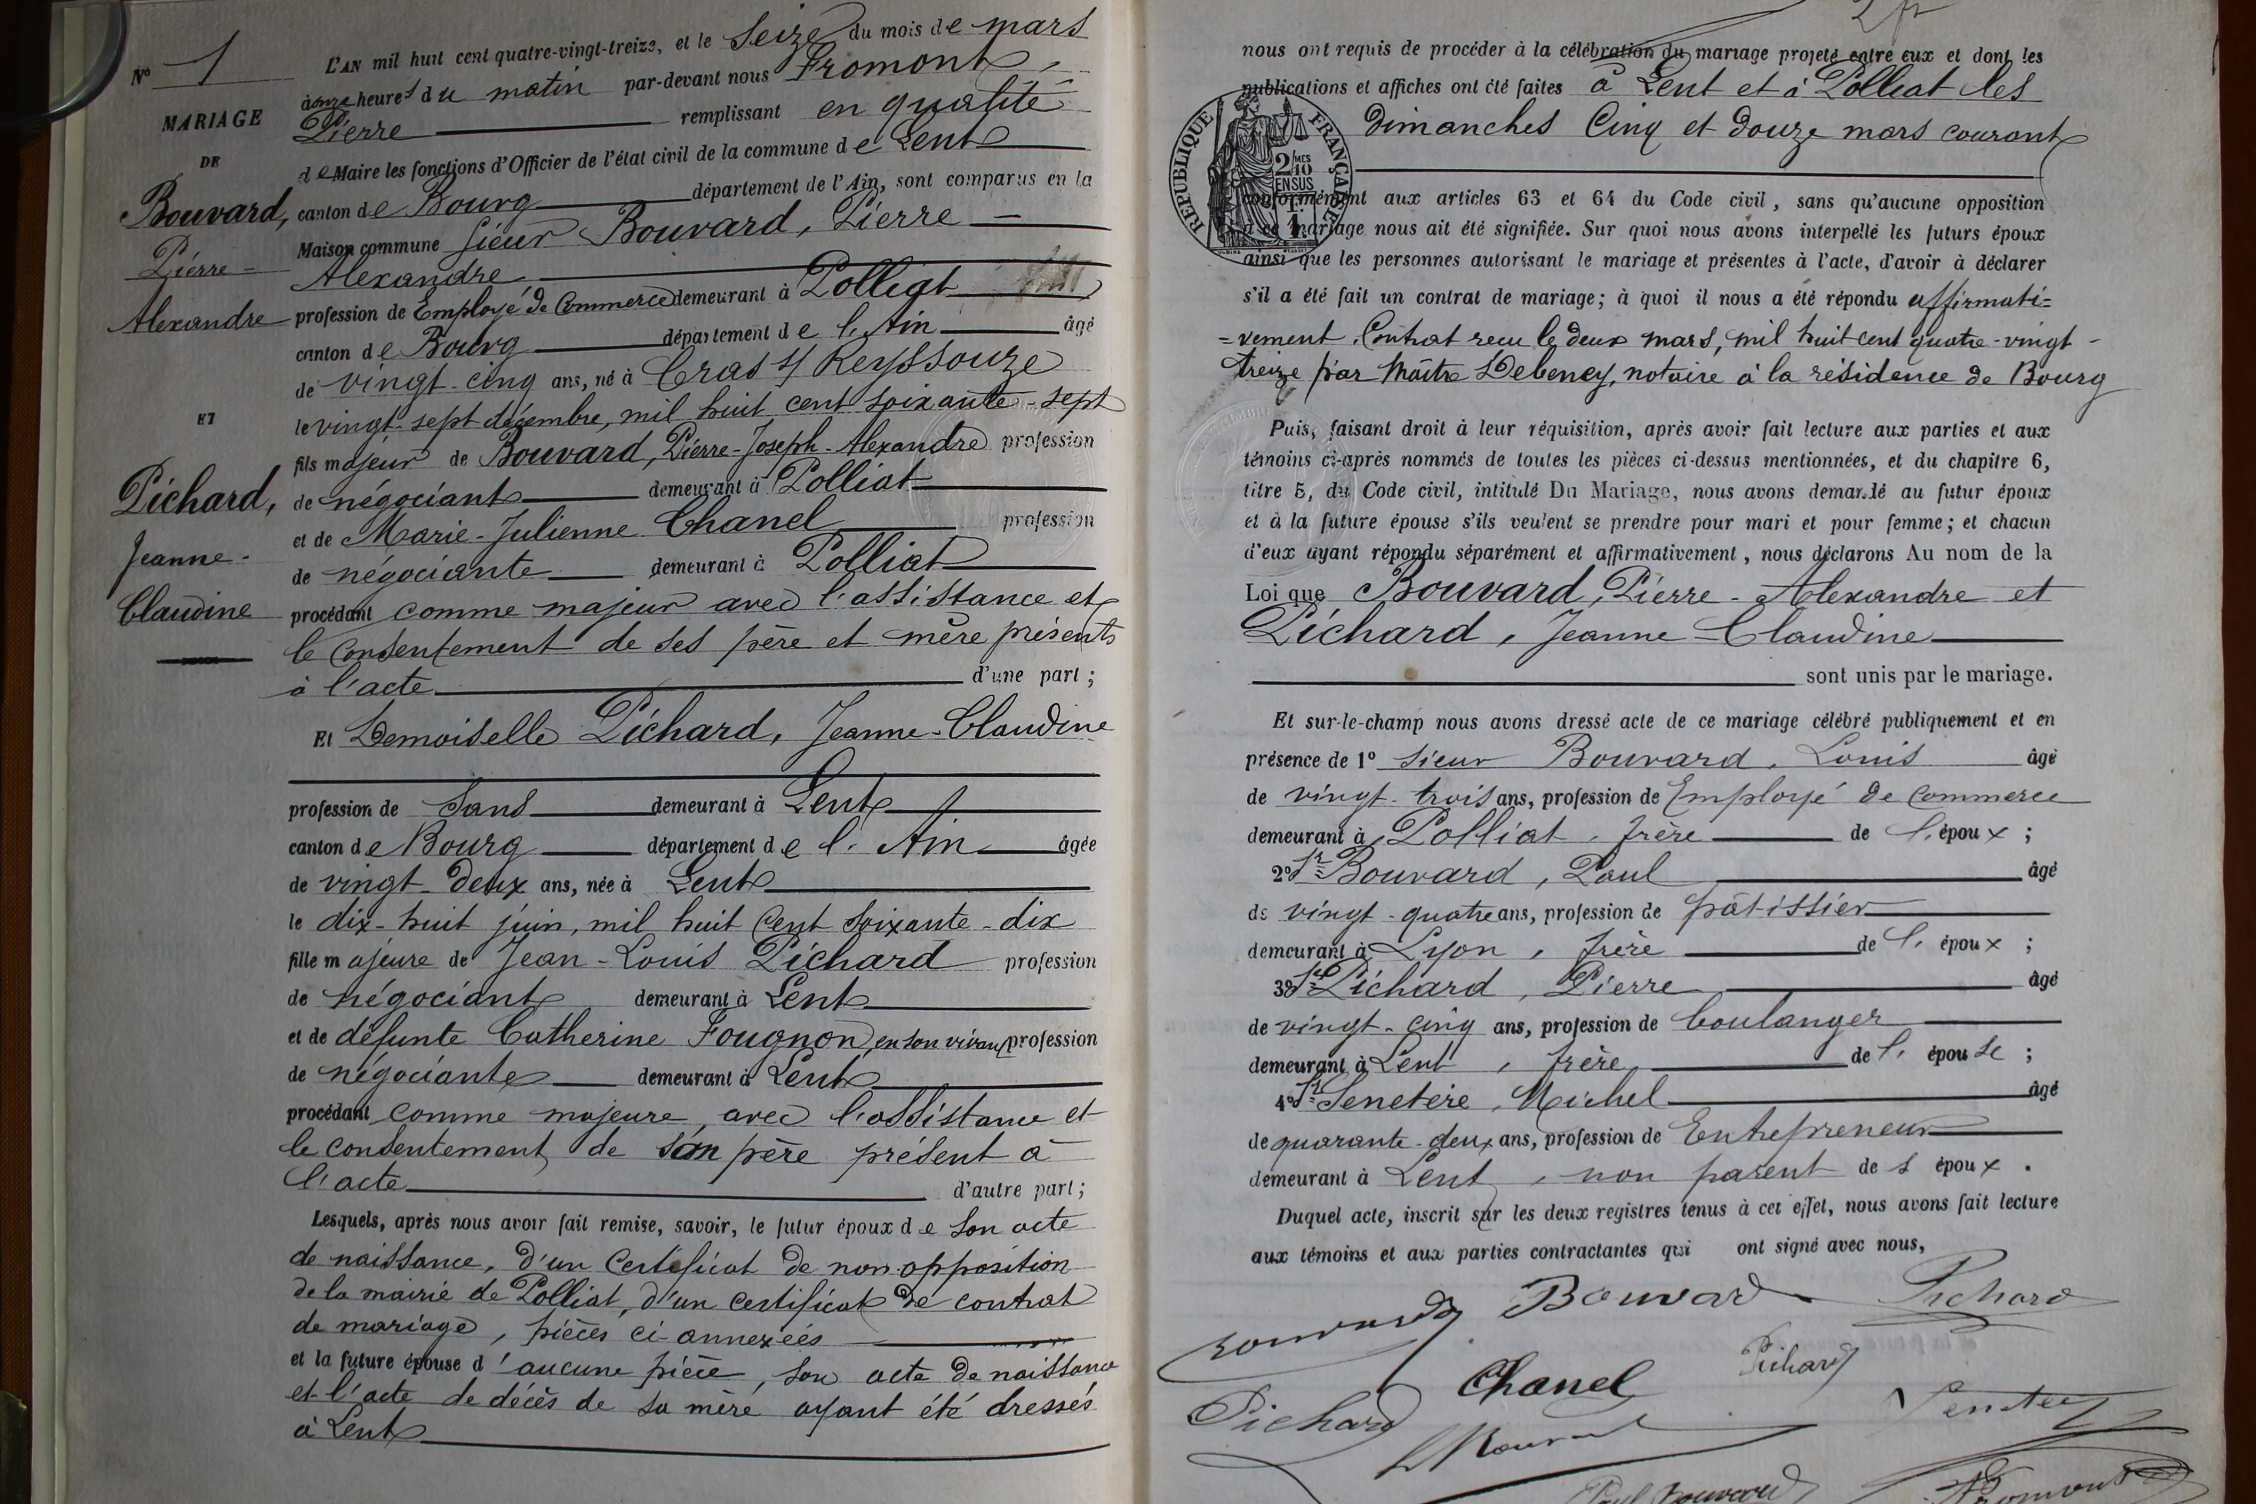 N° 1
MARIAGE
DE
Bouvard,
Pierre =
Alexandre
ET
Pichard,
Jeanne-
Claudine
L'AN mil huit cent quatre-vingt-treize, et le Seize du mois de mars
à onze heures du matin par-devant nous Fromont,
Pierre remplissant en qualité
de Maire les fonctions d'Officier de l'état civil de la commune de Lent
canton de Bourg département de l'Ain, sont comparus en la
Maison commune Sieur Bouvard, Pierre
Alexandre,
profession de Employé de Commerce demeurant à Polliat
canton de Bourg département de l'Ain âgé
de vingt-cinq ans, né à Cras s/ Reyssouze
le vingt-sept décembre, mil huit cent soixante-sept
fils majeur de Bouvard, Pierre-Joseph-Alexandre profession
de négociant demeurant à Polliat
et de Marie-Julienne Chanel profession
de négociante demeurant à Polliat
procédant comme majeur avec l'assistance et
le consentement de ses père et mère présents
à l'acte d'une part ;
Et Demoiselle Pichard, Jeanne-Claudine
profession de Sans demeurant à Lent
canton de Bourg département de l'Ain âgée
de vingt-deux ans, née à Lent
le dix-huit juin, mil huit cent soixante-dix
fille majeure de Jean-Louis Pichard profession
de négociant demeurant à Lent
et de défunte Catherine Fougnon, en son vivant profession
de négociante demeurant à Lent
procédant comme majeure, avec l'assistance et
le consentement de son père présent à
l'acte d'autre part ;
Lesquels, après nous avoir fait remise, savoir, le futur époux de son acte
de naissance, d'un certificat de non opposition
de la mairie de Polliat, d'un certificat de contrat
de mariage, pièces ci-annexées
et la future épouse d'aucune pièce, son acte de naissance
et l'acte de décès de sa mère ayant été dressés
à Lent
nous ont requis de procéder à la célébration du mariage projeté entre eux et dont les
publications et affiches ont été faites à Lent et à Polliat les
dimanches Cinq et douze mars courant
RÉPUBLIQUE FRANÇAISE
2/10 MES
EN SUS
conformément aux articles 63 et 64 du Code civil, sans qu'aucune opposition
à ce mariage nous ait été signifiée. Sur quoi nous avons interpellé les futurs époux
ainsi que les personnes autorisant le mariage et présentes à l'acte, d'avoir à déclarer
s'il a été fait un contrat de mariage ; à quoi il nous a été répondu affirmati=
=vement. Contrat reçu le deux mars, mil huit cent quatre-vingt-
treize par Maître Debeney, notaire à la résidence de Bourg
Puis, faisant droit à leur réquisition, après avoir fait lecture aux parties et aux
témoins ci-après nommés de toutes les pièces ci-dessus mentionnées, et du chapitre 6,
titre 5, du Code civil, intitulé Du Mariage, nous avons demandé au futur époux
et à la future épouse s'ils veulent se prendre pour mari et pour femme ; et chacun
d'eux ayant répondu séparément et affirmativement, nous déclarons Au nom de la
Loi que Bouvard, Pierre-Alexandre et
Pichard, Jeanne-Claudine
sont unis par le mariage.
Et sur-le-champ nous avons dressé acte de ce mariage célébré publiquement et en
présence de 1° sieur Bouvard, Louis âgé
de vingt-trois ans, profession de Employé de commerce
demeurant à Polliat, frère de l'époux ;
2° Sr Bouvard, Paul âgé
de vingt-quatre ans, profession de pâtissier
demeurant à Lyon, frère de l'époux ;
3° Sr Pichard, Pierre âgé
de vingt-cinq ans, profession de boulanger
demeurant à Lent, frère de l'épouse ;
4° Sr Senetère, Michel âgé
de quarante-deux ans, profession de Entrepreneur
demeurant à Lent, non parent de s époux.
Duquel acte, inscrit sur les deux registres tenus à cet effet, nous avons fait lecture
aux témoins et aux parties contractantes qui ont signé avec nous,
Bouvard Pichard
Chanel Pichard
Pichard
Paul Bouvard Fromont